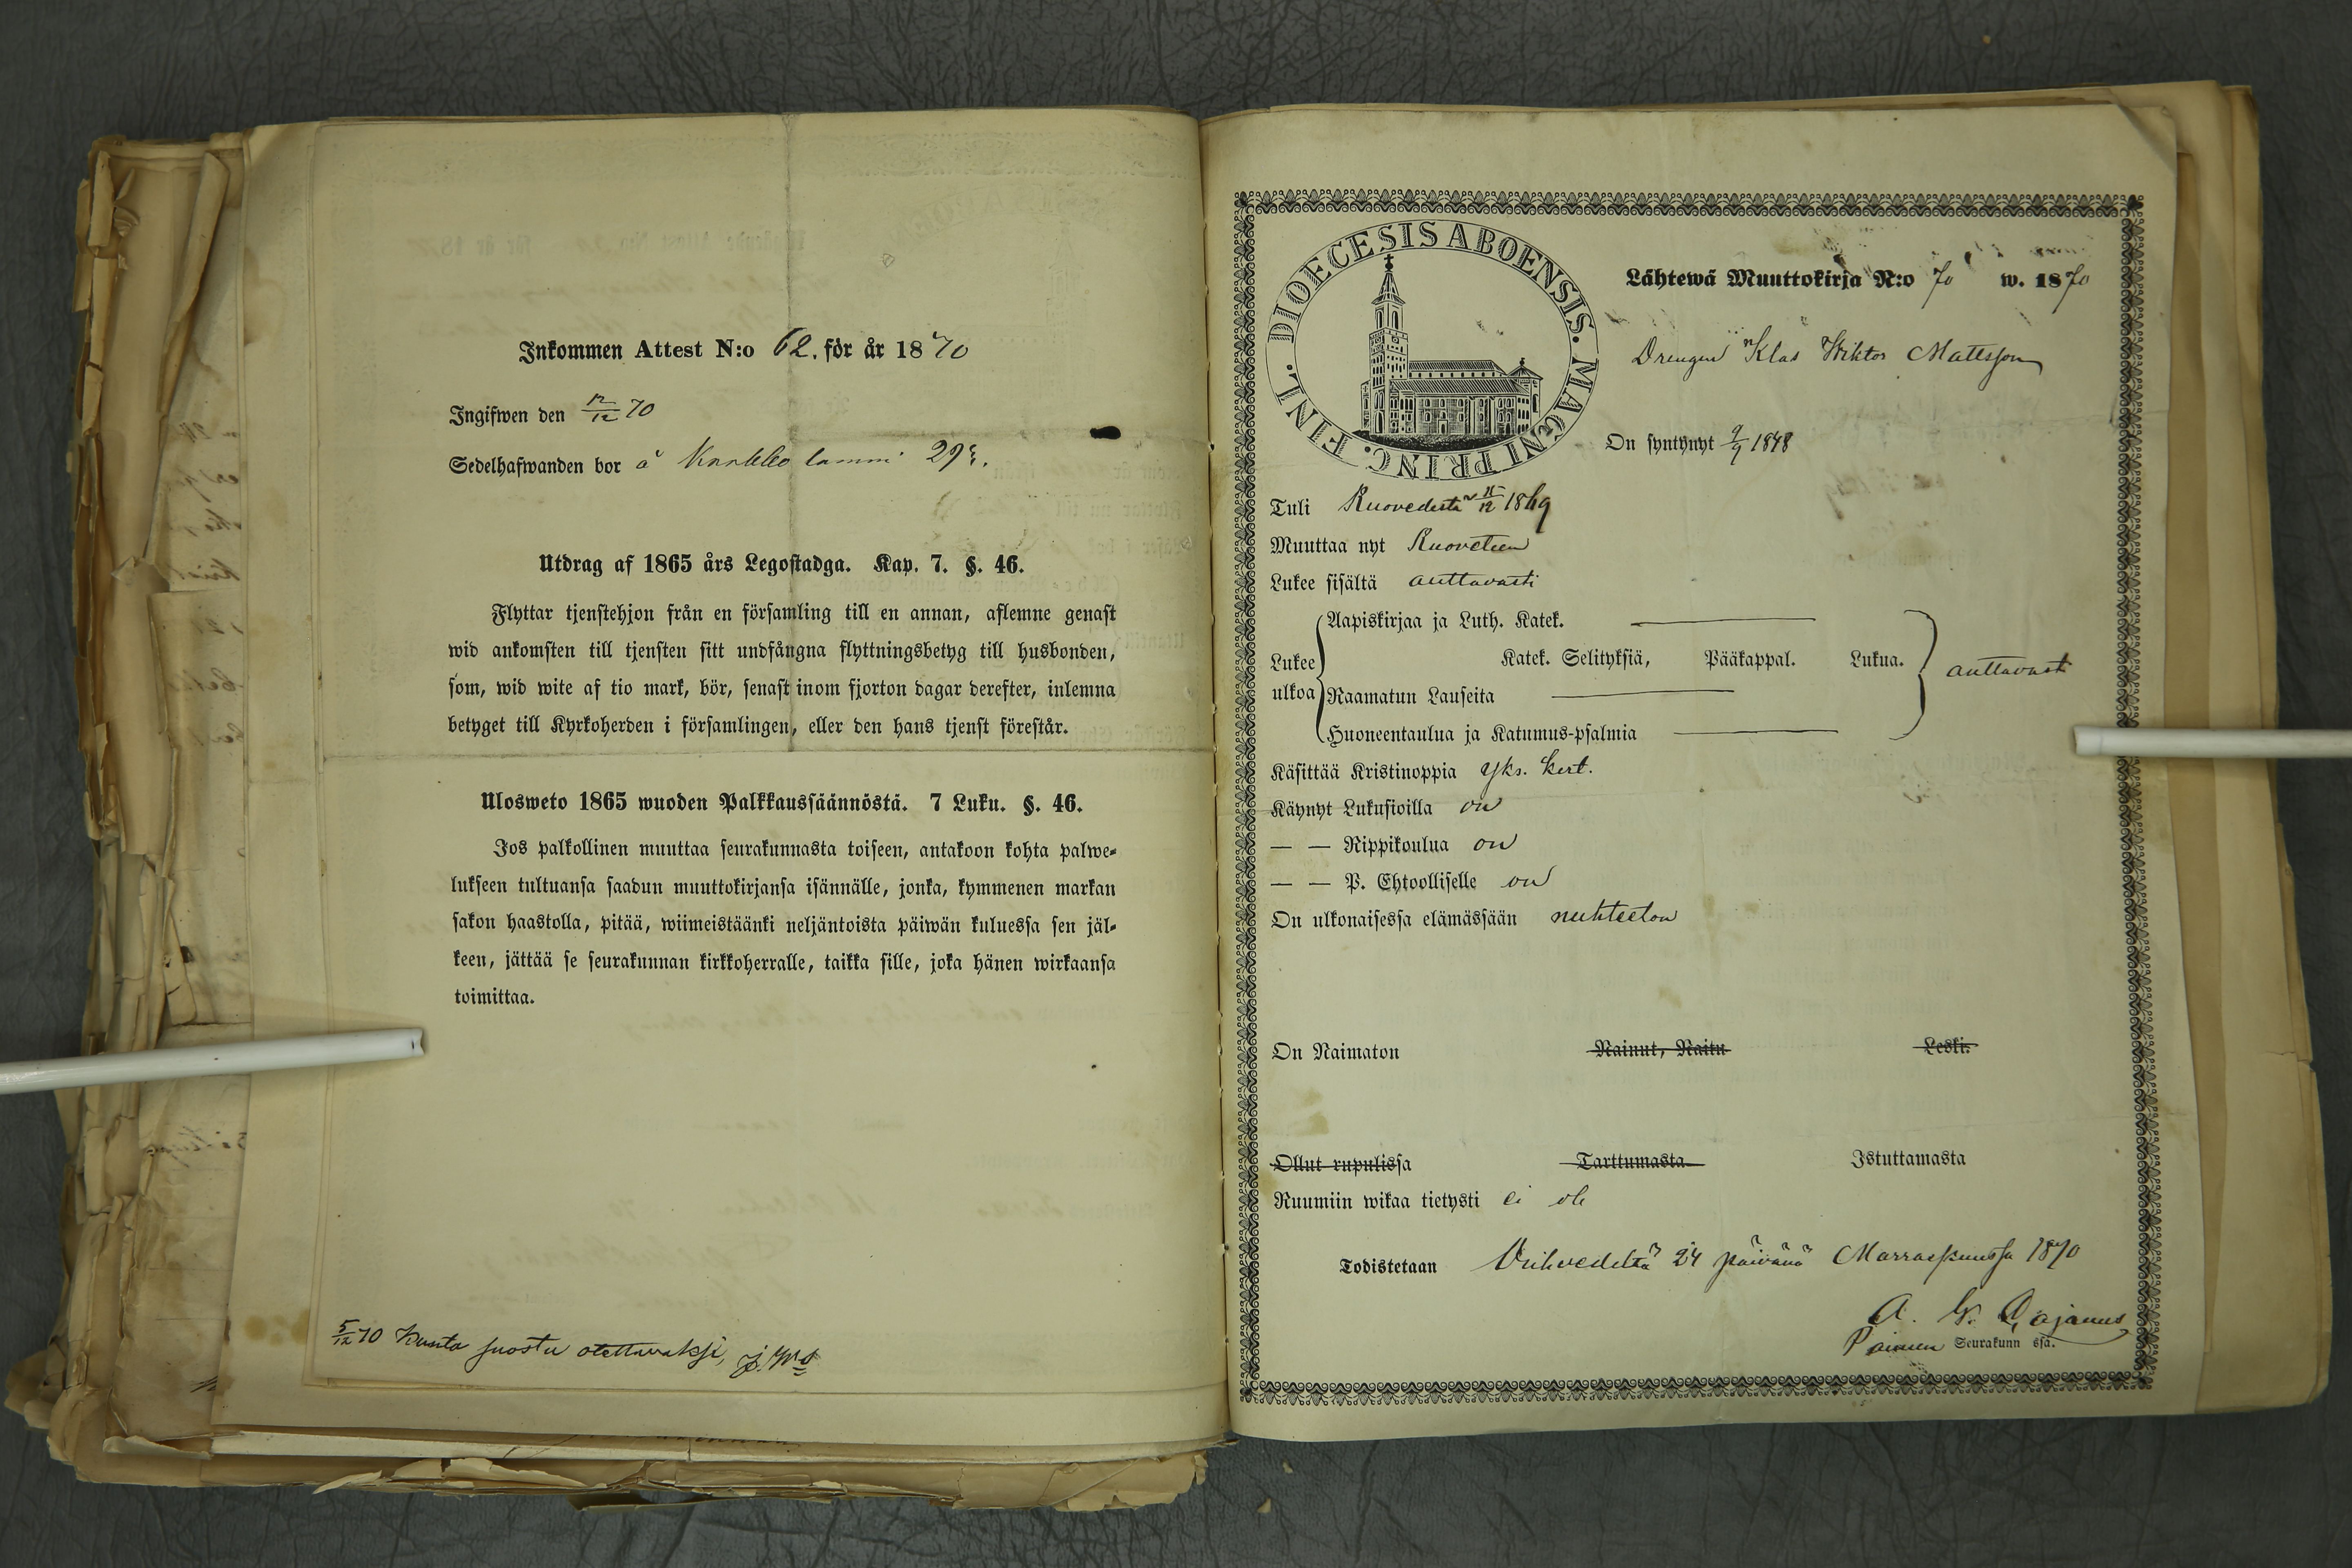 Inkommen Attest N:o 62. för år 1870
Ingifwen den 12/12 70
Sedelhafwanden bor å
Utdrag af 1865 års Legostadga. Kap. 7. §. 46.
Flyttar tjenstehjon från en församling till en annan, aflemne genast
wid ankomsten till tjensten sitt undfångna flyttningsbetyg till husbonden,
som, wid wite af tio mark, bör, senast inom fjorton dagar derefter, inlemna
betyget till Kyrkoherden i församlingen, eller den hans tjenst förestår.
Ulosweto 1865 wuoden Palkkaussäännöstä. 7 Luku. §. 46.
Jos palkollinen muuttaa seurakunnasta toiseen, antakoon kohta palwe-
lukseen tultuansa saadun muuttokirjansa isännälle, jonka, kymmenen markan
sakon haastolla, pitää, wiimeistäänki neljäntoista päiwän kuluessa sen jäl-
keen, jättää se seurakunnan kirkkoherralle, taikka sille, joka hänen wirkaansa
toimittaa.
5/12 70 Kunta suostu otettavaksi,
DIOECESIS ABOENSIS. MAGNI PRINC. FINL.
Lähtewä Muuttokirja N:o 70 w. 1870
Drengen Klas Wiktor Mattsson
On syntynyt 9/9 1848
Tuli Ruovedestä 1869
Muuttaa nyt Ruoveteen
Lukee sisältä auttavasti
Lukee ulkoa
Aapiskirjaa ja Luth. Katek.
Katek. Selityksiä, Pääkappal. Lukua. auttavasti
Raamatun Lauseita
Huoneentaulua ja Katumus-psalmia
Käsittää Kristinoppia yks. kert.
Käynyt Lukusioilla on
— — Rippikoulua on
— — P. Ehtoolliselle on
On ulkonaisessa elämässään nuhteeton
On Naimaton Nainut, Naitu Leski.
Ollut rupulissa Tarttumasta Istuttamasta
Ruumiin wikaa tietysti ei ole
Todistetaan 24 päivänä Marraskuussa 1870
A. W.
Seurakunn ssa.